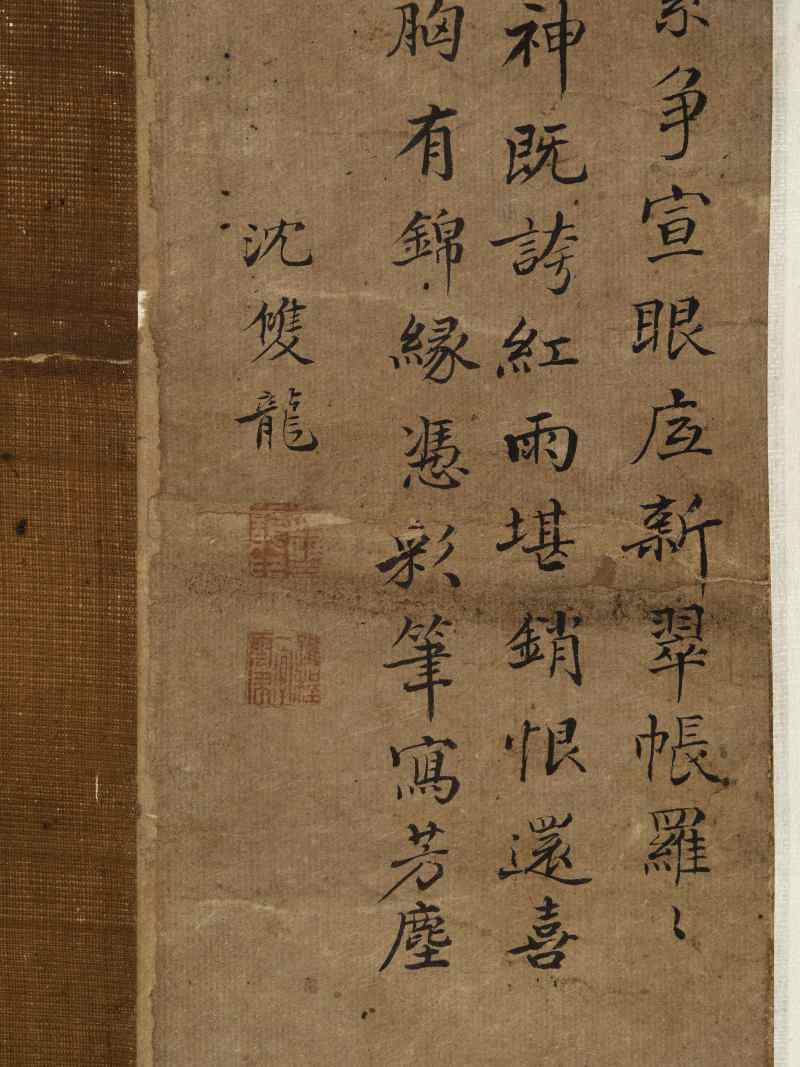 争宣眼底新翠帳羅〻
神既誇紅雨堪銷恨還喜
胸有錦緣憑彩筆寫芳塵
沈雙龍